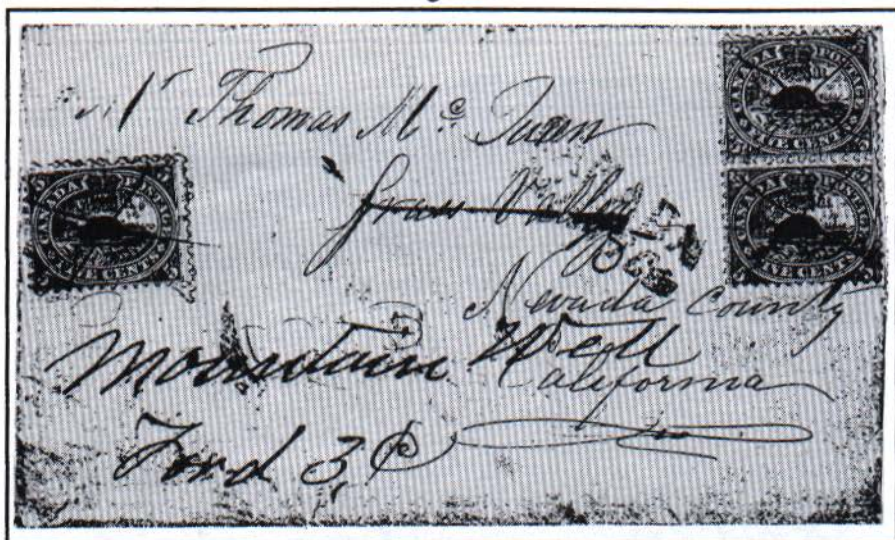 Mr Thomas Mc
Grass Valley
Nevada County
Mountain Well
California
Ford 3
CANADA POSTAGE
FIVE CENTS
CANADA POSTAGE
FIVE CENTS
CANADA POSTAGE
FIVE CENTS